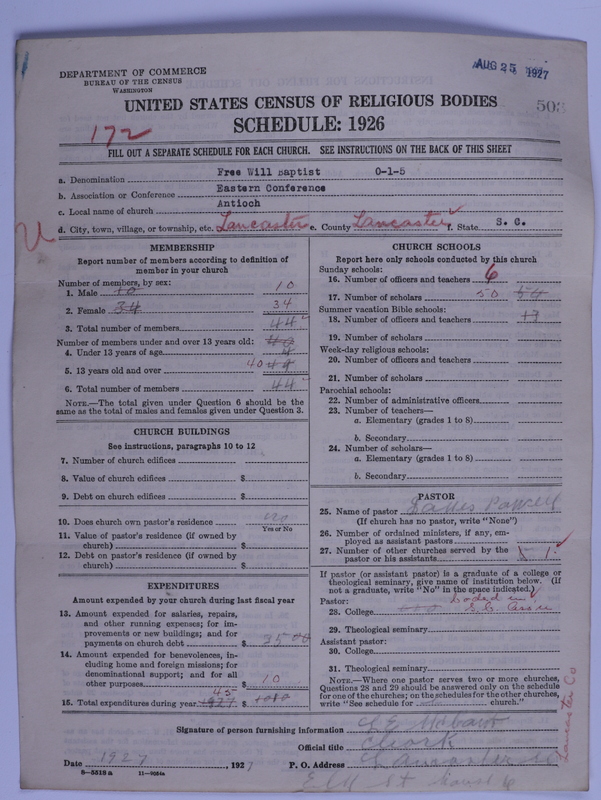 DEPARTMENT OF COMMERCE
BUREAU OF THE CENSUS
WASHINGTON
AUG 25 1927
UNITED STATES CENSUS OF RELIGIOUS BODIES
503
SCHEDULE: 1926
172
FILL OUT A SEPARATE SCHEDULE FOR EACH CHURCH. SEE INSTRUCTIONS ON THE BACK OF THIS SHEET
a. Denomination Free Will Baptist 0-1-5
b. Association or Conference Eastern Conference
c. Local name of church Antioch
d. City, town, village, or township, etc. Lancaster e. County Lancaster f. State S. C.
U
MEMBERSHIP
Report number of members according to definition of
member in your church
Number of members, by sex:
1. Male 10 10
2. Female 34 34
3. Total number of members 44
Number of members under and over 13 years old:
4. Under 13 years of age 4
5. 13 years old and over 40 44
6. Total number of members 44
NOTE.—The total given under Question 6 should be
the same as the total of males and females given under Question 3.
CHURCH BUILDINGS
See instructions, paragraphs 10 to 12
7. Number of church edifices
8. Value of church edifices $
9. Debt on church edifices $
10. Does church own pastor's residence no
Yes or No
11. Value of pastor's residence (if owned by
church) $
12. Debt on pastor's residence (if owned by
church) $
EXPENDITURES
Amount expended by your church during last fiscal year
13. Amount expended for salaries, repairs,
and other running expenses; for im-
provements or new buildings; and for
payments on church debt $ 35 00
14. Amount expended for benevolences, in-
cluding home and foreign missions; for
denominational support; and for all
other purposes $ 10
45
15. Total expenditures during year 1927 $
CHURCH SCHOOLS
Report here only schools conducted by this church
Sunday schools:
16. Number of officers and teachers 6
17. Number of scholars 50 54
Summer vacation Bible schools:
18. Number of officers and teachers
19. Number of scholars
Week-day religious schools:
20. Number of officers and teachers
21. Number of scholars
Parochial schools:
22. Number of administrative officers
23. Number of teachers—
a. Elementary (grades 1 to 8)
b. Secondary
24. Number of scholars—
a. Elementary (grades 1 to 8)
b. Secondary
PASTOR
25. Name of pastor James Powell
(If church has no pastor, write "None")
26. Number of ordained ministers, if any, em-
ployed as assistant pastors
27. Number of other churches served by the
pastor or his assistants 1
If pastor (or assistant pastor) is a graduate of a college or
theological seminary, give name of institution below. (If
not a graduate, write "No" in the space indicated.)
Pastor:
28. College
29. Theological seminary
Assistant pastor:
30. College
31. Theological seminary
NOTE.—Where one pastor serves two or more churches,
Questions 28 and 29 should be answered only on the schedule
for one of the churches; on the schedules for the other churches,
write "See schedule for church."
Lancaster Co
Signature of person furnishing information
Official title Clerk
Date 1927, 1927 P. O. Address Lancaster
8—5518 a 11—9084a